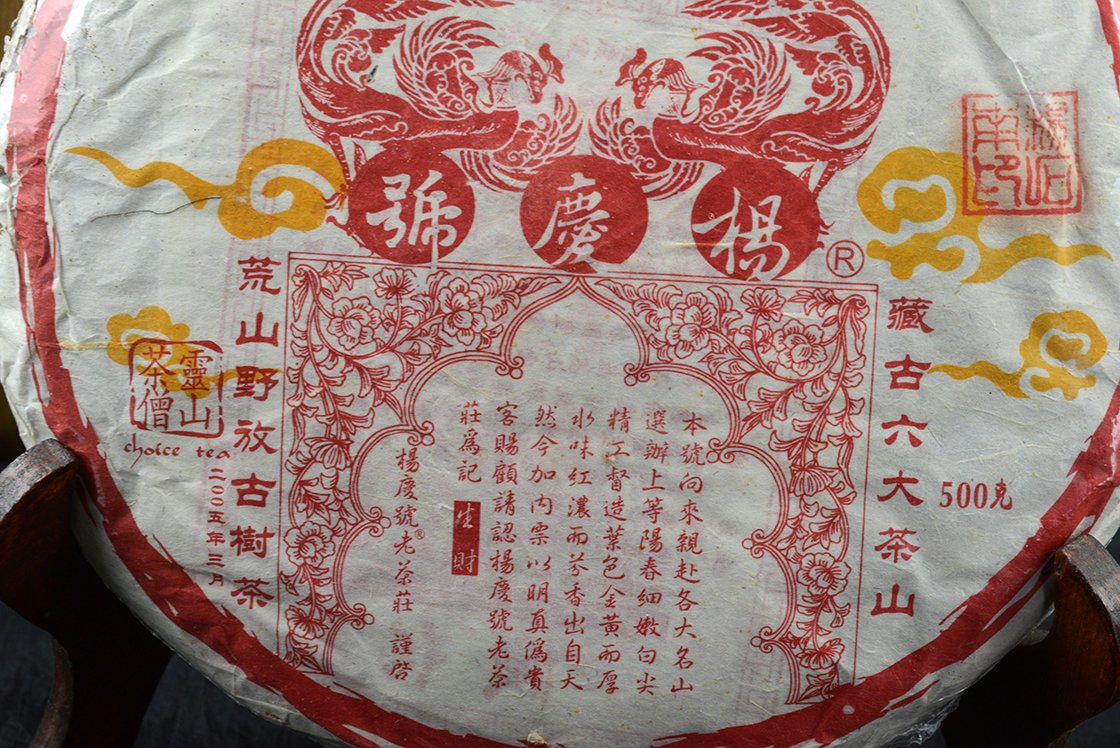 楊慶號®
藏古六大茶山
500克
本號向來親赴各大名山
選辦上等陽春細嫩白尖
精工督造葉色金黃而厚
水味紅濃而芬香出自天
然今加內票以明真僞貴
客賜顧請認楊慶號老茶
莊爲記 生財
楊慶號®老茶莊 謹啓
荒山野放古樹茶
二〇〇五年三月
靈山
茶僧
choice tea